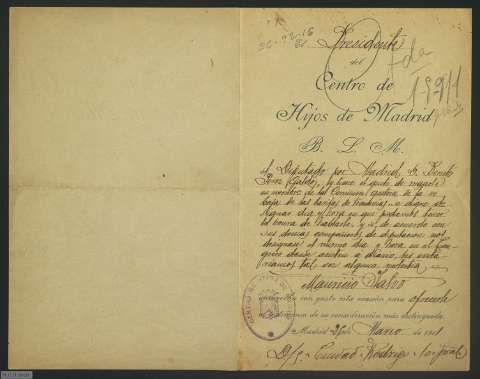 Presidente
del
Centro de
Hijos de Madrid
B. L. M.
al Diputado por Madrid, D. Benito
Perez Galdós, y tiene el gusto de
en nombre de la Comisión gestora de la re-
baja de las tarifas de tranvías, se digne de
signar dia y hora en que podamos tener
la honra de hablarle, y si de acuerdo con
sus demas compañeros de diputacion nos
designan el mismo dia y hora en el Con-
greso donde acuden a diario, les evita-
riamos tal vez alguna molestia
Mauricio Jalvo
aprovecha con gusto esta ocasión para ofrecerle
el testimonio de su consideración más distinguida.
Madrid 26 de Marzo de 1911
D/c. Ciudad Rodrigo